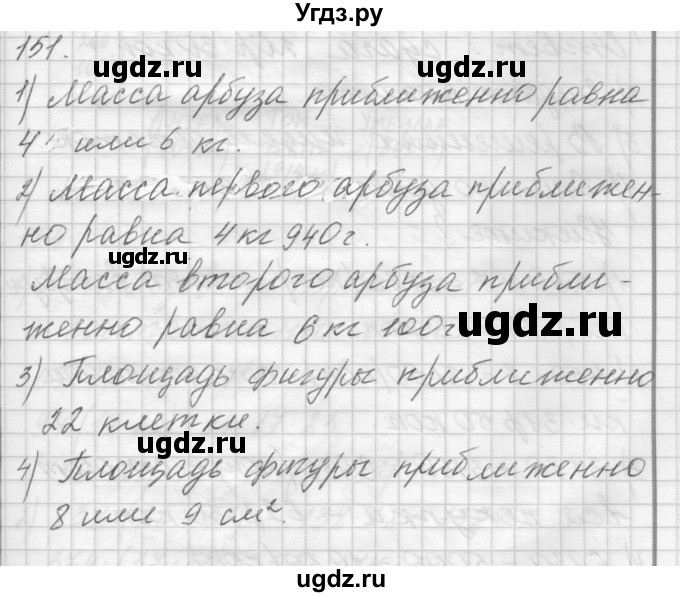 Угдз.ру
151.
ugdz.ru ugdz.ru
1) Масса арбуза приближенно равна
4 или 6 кг.
ugdz.ru
2) Масса первого арбуза приближен-
но равна 4 кг 940 г.
ugdz.ru
Масса второго арбуза прибли-
женно равна 6 кг 100 г
ugdz.ru
3) Площадь фигуры приближенно
22 клетки.
ugdz.ru
4) Площадь фигуры приближенно
8 или 9 см².
ugdz.ru
ugdz.ru